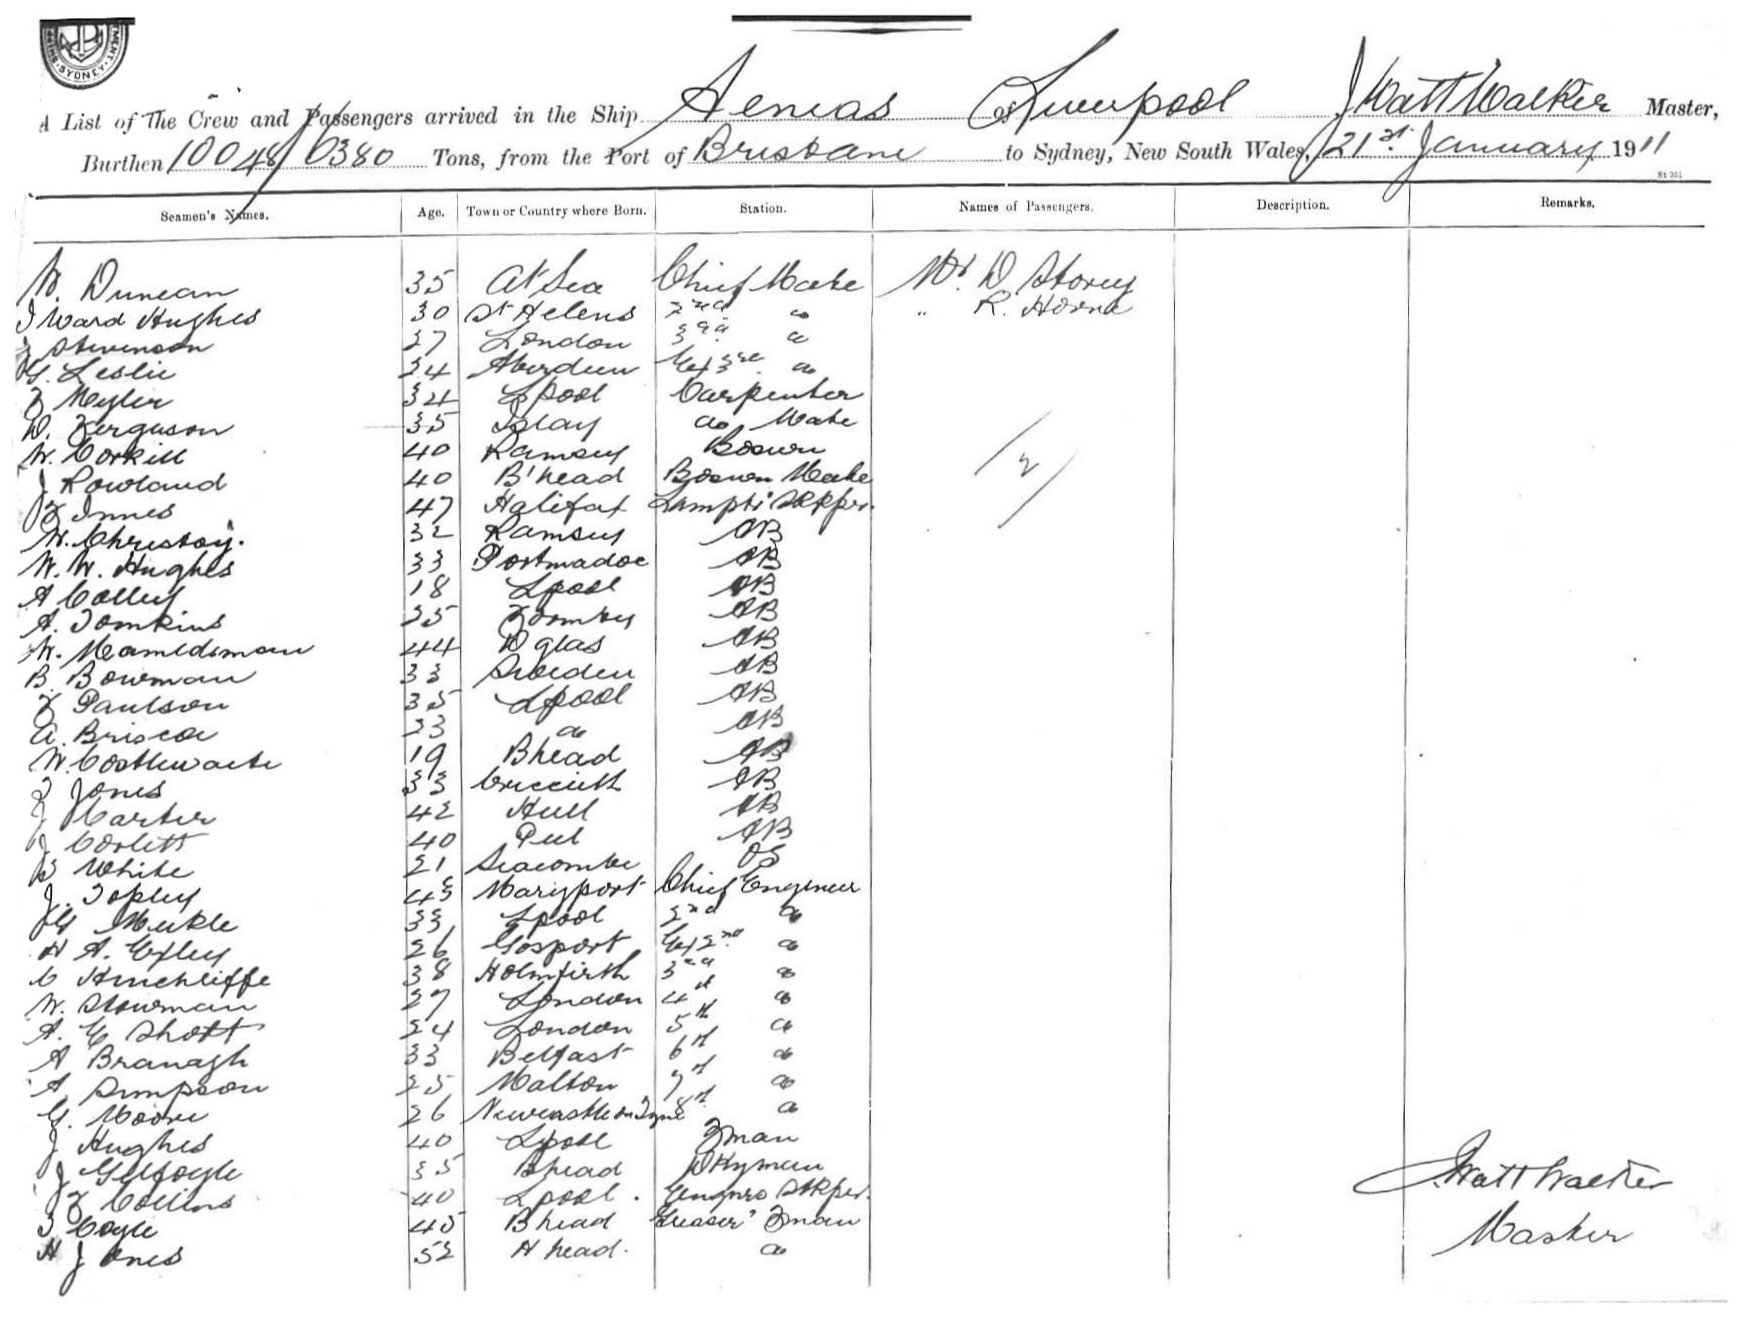 SYDNEY
A List of The Crew and Passengers arrived in the Ship Aeneas Of Liverpool J Watt Walker Master,
Burthen 10048/6380 Tons, from the Port of Brisbane to Sydney, New South Wales, 21st January 1911
St 201
Seamen's Names. Age. Town or Country where Born. Station. Names of Passengers. Description. Remarks.
W. Duncan 35 At Sea Chief Mate Mr. D Storey
I Ward Hughes 30 St Helens 2nd do " R. Horne
J Stevenson 27 London 3rd do
G. Leslie 24 Aberdeen Ex 3rd do
F Meyler 34 Lpool Carpenter
D. Ferguson 35 Islay do Mate
W. Corkill 40 Ramsey Bosun
J Rowland 40 B'head Bosun Mate
F Innes 47 Halifax Lamps Skpr.
W. Christay. 32 Ramsey AB
W. W. Hughes 33 Portmadoc AB
A Colley 18 Lpool AB
A. Tomkins 25 Formby AB
W. 44 Dglas AB
B. Bowman 33 Sweden AB
F Paulson 35 Lpool AB
A. Briscoe 23 do AB
W. Costlewaite 19 Bhead AB
J Jones 33 Criccieth AB
J Carter 42 Hull AB
J Corlett 40 Peel AB
B White 21 Seacombe OS
J. Topley 43 Maryport Chief Engineer
G Meikle 33 Lpool 2nd do
H A. Exley 26 Gosport Ex 2nd do
C Hinchliffe 38 Holmfirth 3rd do
W. Stowman 27 London 4th do
A. E Shott 24 London 5th do
A Branagh 33 Belfast 6th do
A. Simpson 25 Malton 7th do
G. Moore 26 Newcastle on Tyne 8th do
J Hughes 40 Lpool Fman
J Gilfoyle 35 Bhead Dkyman
F Collins 40 Lpool. Engnrs Stkpr.
J Coyle 45 Bhead Greaser Fman
H Jones 52 Hhead. do
2
J. Watt Walker
Master